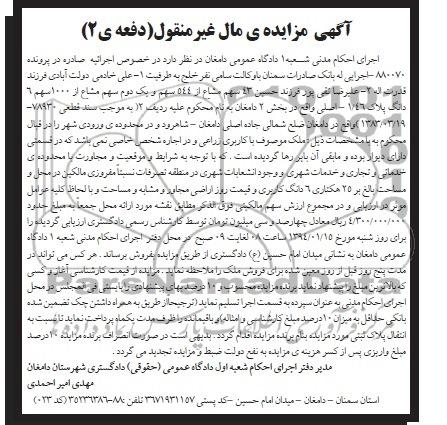 آگهی مزایده ی مال غیرمنقول(دفعه ی۲)
اجرای احکام مدنی شعبه۱ دادگاه عمومی دامغان در نظر دارد در خصوص اجرائیه صادره در پرونده
۸۸۰۰۷۰ -اجرایی له بانک صادرات سمنان باوکالت سامی نفر خلج به طرفیت ۱- علی خادمی دولت آبادی فرزند
قدرت اله ۲- علیرضا تقی پور فرزند حسین ۹۳ سهم مشاع از ۵۴۴ سهم و یک دوم سهم مشاع از ۱۰۰۰سهم ۶
دانگ پلاک ۱/۴۶ - اصلی واقع در بخش ۲ دامغان به نام محکوم علیه ردیف ۲( به موجب سند قطعی ۷۸۹۳۰-
۱۳۸۳/۰۳/۱۹ )واقع در دامغان ضلع شمالی جاده اصلی دامغان - شاهرود و در محدوده ی ورودی شهر را در قبال
محکوم به با مشخصات ذیل :ملک موصوف با کاربری زراعی و در اجاره شخص خاصی نمی باشد که در قسمتی
دارای دیوار بوده و مابقی آن بایر رها گردیده است . که با توجه به شرایط و موقعیت و مجاورت با محدوده ی
خدماتی و تجاری و خدمات شهری و وجود انشعابات شهری در منطقه تصرفات نسبتاً مفروزی مالکین در محل و
مساحت بالغ بر ۲۵ هکتاری ۶ دانگ کاربری و قیمت روز اراضی مجاور و مشابه و مساحت و با لحاظ کلیه عوامل
موثر در ارزیابی و در مجموع ارزش سهم مالکیتی فوق الذکر مطابق نقشه مورد ارائه محل جمعاً به مبلغ حدود
۴/۳۰۰/۰۰۰/۰۰۰ ریال معادل چهارصد و سی میلیون تومان توسط کارشناس رسمی دادگستری ارزیابی گردیده را
برای روز شنبه مورخ ۱۳۹۴/۰۱/۱۵ ساعت ۰۸ لغایت ۰۹ صبح در محل دفتر اجرای احکام مدنی شعبه ۱ دادگاه
عمومی دامغان به نشانی میدان امام حسین (ع) دادگستری از طریق مزایده بفروش برساند . هر کس می تواند در
مدت پنج روز قبل از روز معین شده برای فروش ملک را ملاحظه نماید . مزایده از قیمت کارشناسی آغاز و کسی
که بالاترین مبلغ را پیشنهاد نماید برنده مزایده محسوب و ۱۰ درصد بهای پیشنهادی را بایستی فی المجلس در محل
اجرای احکام مدنی به عنوان سپرده به قسمت اجرا تسلیم نماید (ترجیحا از طریق به همراه داشتن چک تضمین شده
بانکی حداقل به میزان ۱۰درصد مبلغ کارشناسی و امثاله) و باقیمانده را ظرف مدت یکماه پرداخت نماید تا نسبت به
انتقال پلاک ثبتی مورد مزایده بنام برنده مزایده اقدام گردد . بدیهی است در صورت انصراف برنده مزایده ۱۰درصد
مبلغ واریزی پس از کسر هزینه ی مزایده به نفع دولت ضبط و مزایده تجدید می گردد .
مدیر دفتر اجرای احکام شعبه اول دادگاه عمومی (حقوقی) دادگستری شهرستان دامغان
مهدی امیر احمدی
استان سمنان - دامغان - میدان امام حسین -کد پستی ۳۶۷۱۹۳۱۱۵۷ تلفن :۸۸-۳۵۲۳۶۳۸۶ (کد ۰۲۳)